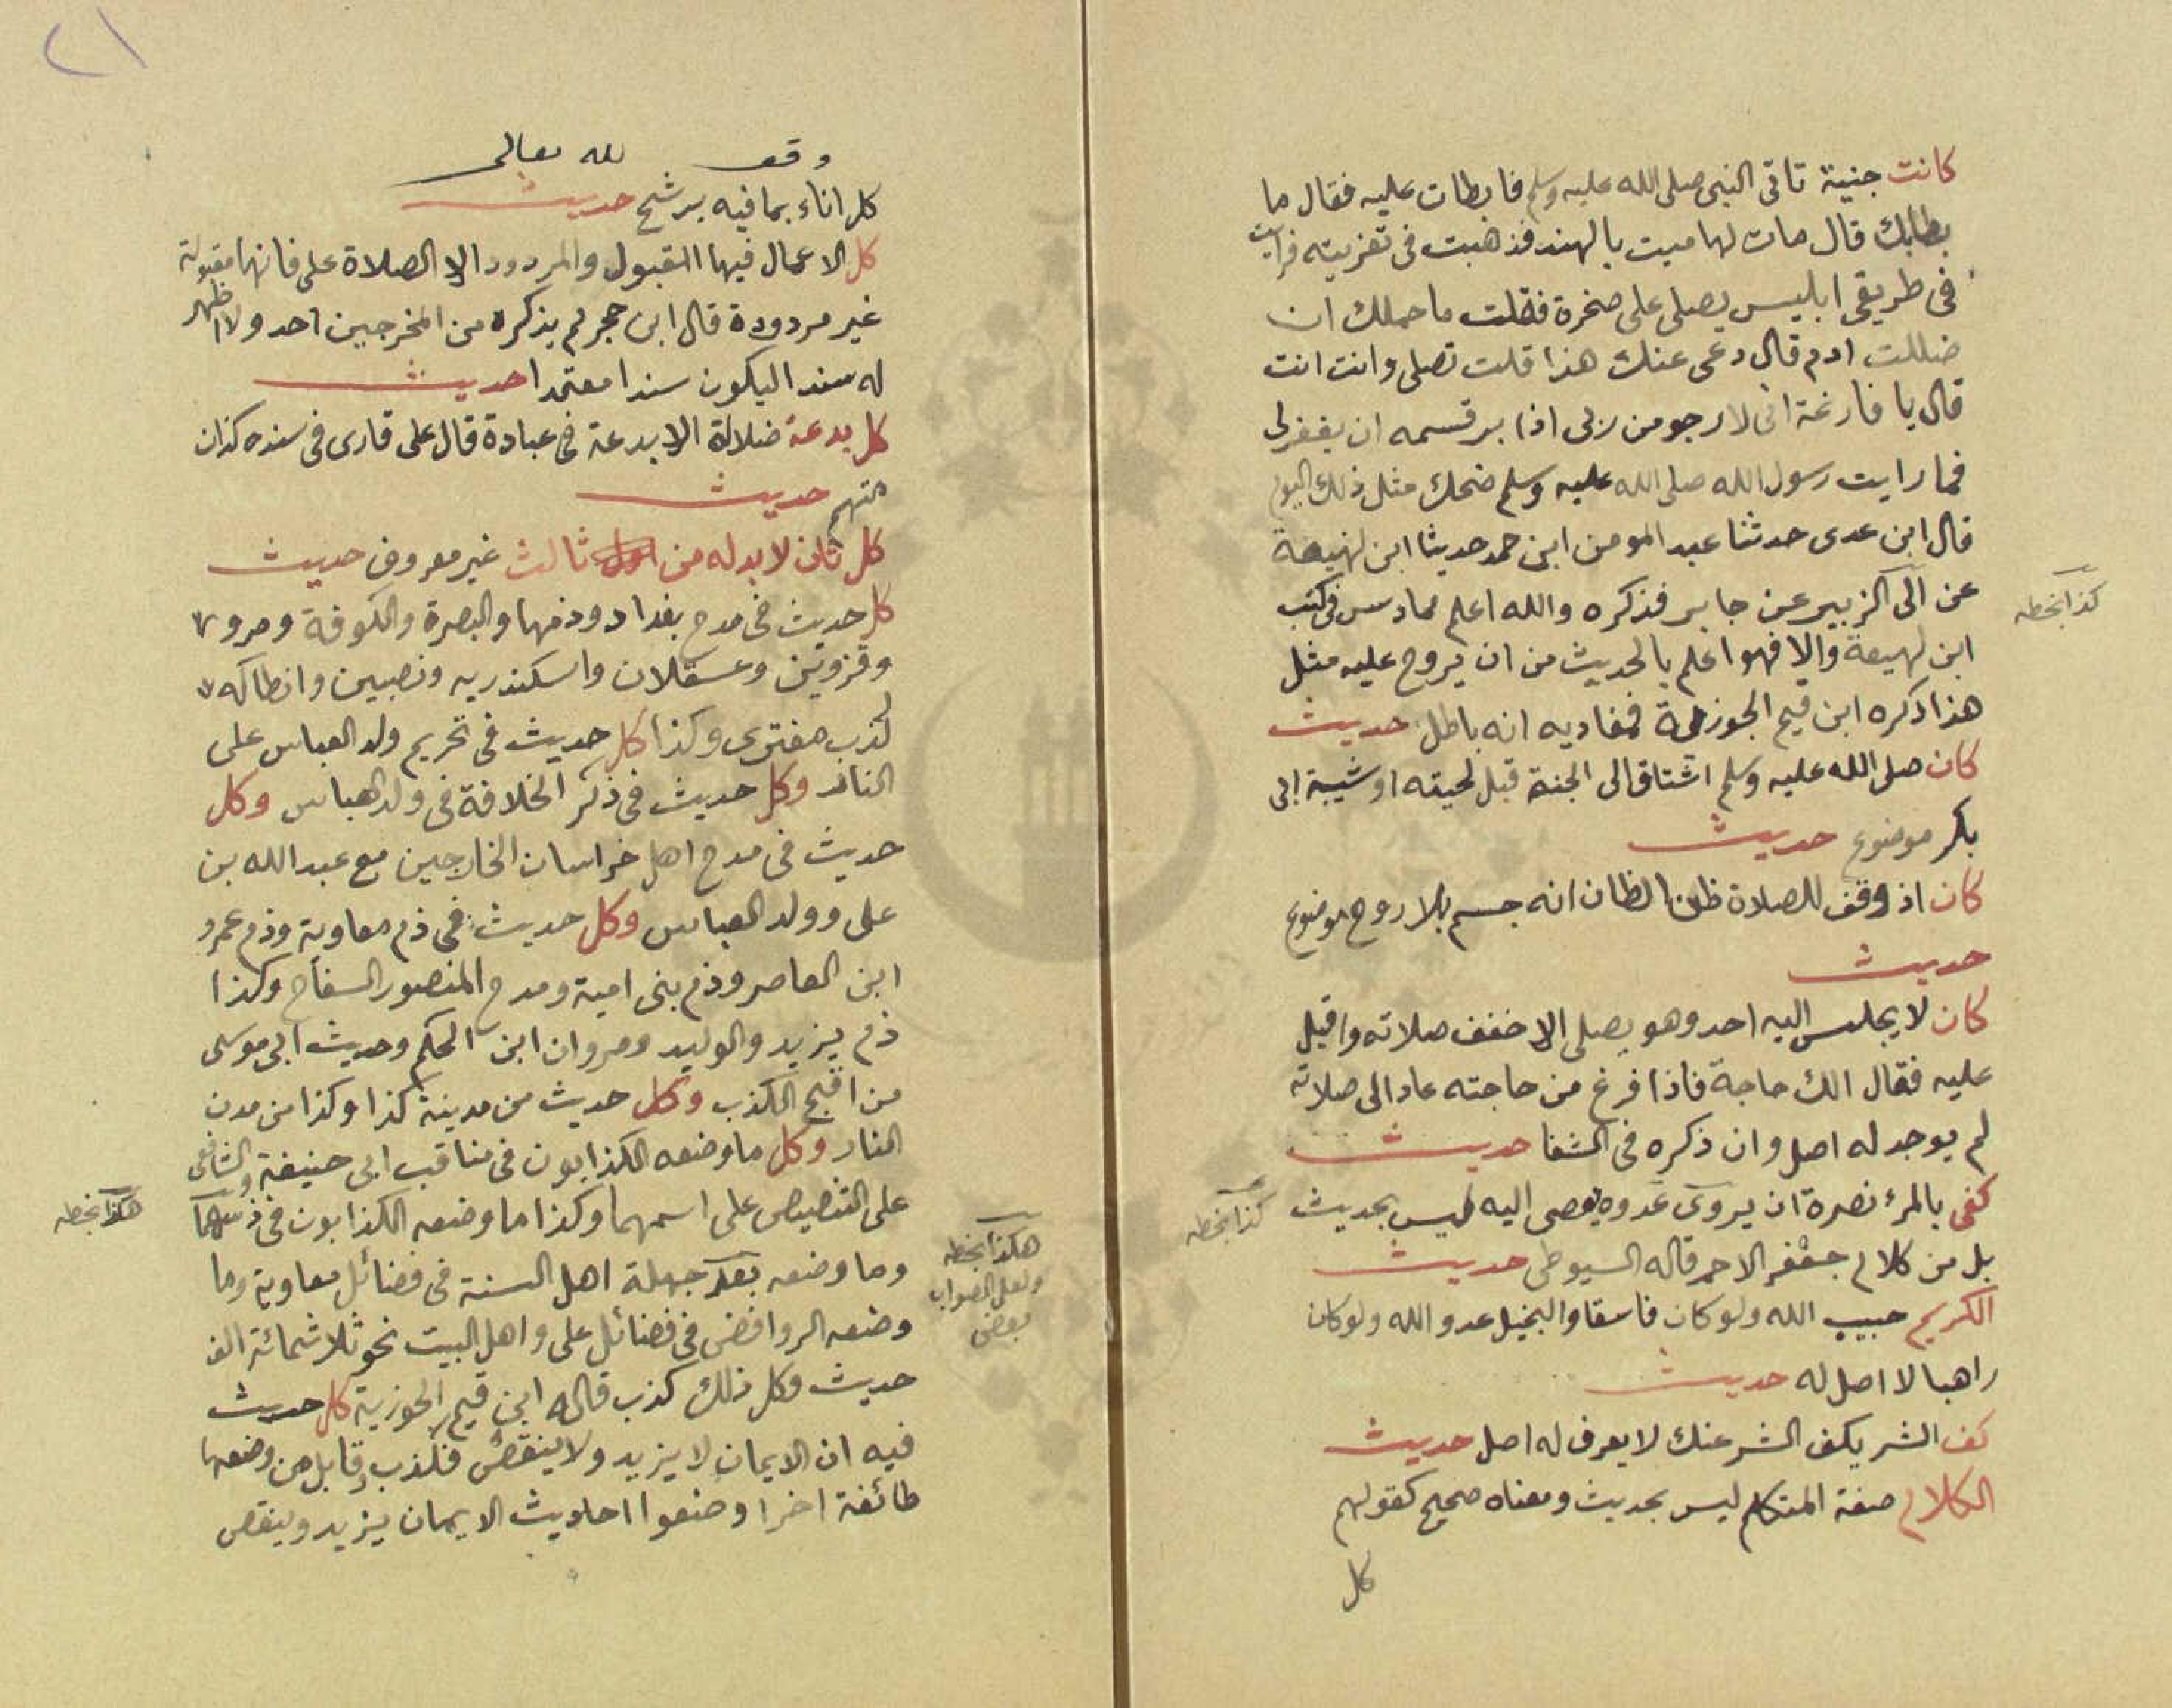 كانت جنية تاتى النبى صلى الله عليه وسلم فابطات عليه فقال ما
بطابك قال مات لها ميت بالهند فذهبت فى تعزيته فرايت
فى طريقى ابليس يصلى على صخرة فقلت ما حملك ان
ضللت ادم قال دعى عنك هذا قلت تصلى وانت انت
قال يا فارغة انى لارجو من ربى اذا بر قسمه ان يغفر لى
فما رايت رسول الله صلى الله عليه وسلم ضحك مثل ذلك اليوم
قال ابن عدى حدثنا عبد المومن ابن حمد حديثا ابن لهيعة
عن الى الزبير عن جابر فذكره والله اعلم مما دس فى كتب
كذا بخطه
ابن لهيعة والا فهو اعلم بالحديث من ان يروج عليه مثل
هذا ذكره ابن قيم الجوزية فمفاديه انه باطل حديث
كان صلى الله عليه وسلم اشتاق الى الجنة قبل لحيته او شيبة ابى
بكر موضوع حديث
كان اذ وقف للصلاة ظن الظان انه جسم بلا روح موضوع
حديث
كان لا يجلس اليه احد وهو يصلى الا خفف صلاته واقبل
عليه فقال الك حاجة فاذا فرغ من حاجته عاد الى صلاته
لم يوجد له اصل وان ذكره فى الشفا حديث
كفى بالمرء نصرة ان يروى عدوه يعصى اليه ليس بحديث
كذا بخطه
بل من كلام جعفر الاحمر قاله السيوطى حديث
الكريم حبيب الله ولو كان فاسقا والبخيل عدو الله ولو كان
راهبا لا اصل له حديث
كف الشر يكف الشر عنك لا يعرف له اصل حديث
الكلام صفة المتكلم ليس بحديث ومعناه صحيح كقولهم
كل
٢١
وقف لله تعالى
كل اناء بما فيه يرشح حديث
كل الاعمال فيها المقبول والمردود الا الصلاة على فانها مقبولة
غير مردودة قال ابن حجر لم يذكره من المخرجين احد ولا اظهر
له سندا ليكون سندا معتمدا حديث
كل بدعة ضلالة الا بدعة فى عبادة قال على قارى فى سنده كذاب
متهم حديث
كل ثان لا بد له من ثالث غير معروف حديث
كل حديث فى مدح بغداد وذمها والبصرة والكوفة ومرو
وقزوين وعسقلان واسكندريه ونصبين وانطاكه
لكذب مفترى وكذا كل حديث فى تحريم ولد العباس على
النار وكل حديث فى ذكر الخلافة فى ولد العباس وكل
حديث فى مدح اهل خراسان الخارجين مع عبد الله بن
على وولد العباس وكل حديث فى ذم معاوية وذم عمرو
ابن العاصر وذم بنى امية ومدح المنصور السفاح وكذا
ذم يزيد والوليد ومروان ابن الحكم وحديث ابى موسى
من اقبح الكذب وكل حديث من مدينة كذا وكذا من مدن
النار وكل ما وضعه الكذابون فى مناقب ابى حنيفة والشافعى
على التنصيص على اسمهما وكذا ما وضعه الكذابون فى ذمهما
هكذا بخطه
وما وضعه بعد جهلة اهل السنة فى فضائل معاوية وما
هكذا بخطه
ولعل الصواب
بعض
وضعه الروافض فى فضائل على واهل البيت نحو ثلاثمائة الف
حديث وكل ذلك كذب قاله ابن قيم الجوزية كل حديث
فيه ان الايمان لا يزيد ولا ينقص فكذب وقابل من وضعها
طائفة اخرا وضعوا احاديث الايمان يزيد وينقص